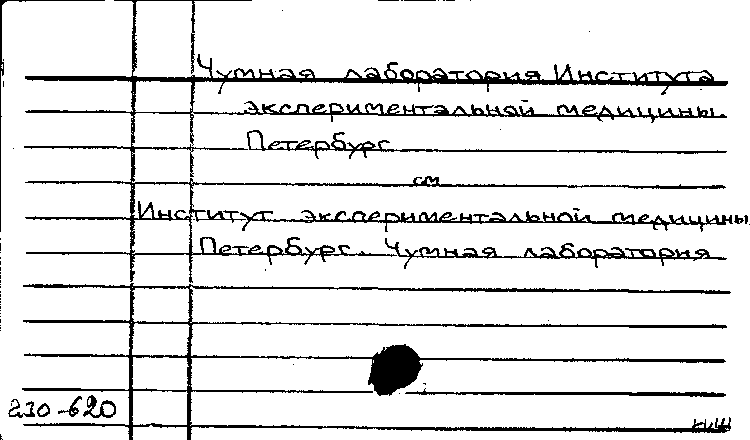 Чумная лаборатория Института
экспериментальной медицины.
Петербург
см
Институт экспериментальной медицины
Петербург. Чумная лаборатория
230-620